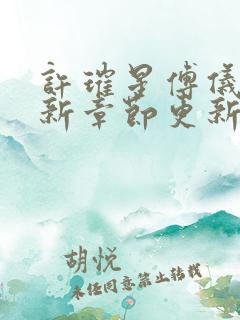 許璀星傅儀
新章節更新
胡悦
未经同意禁止转载